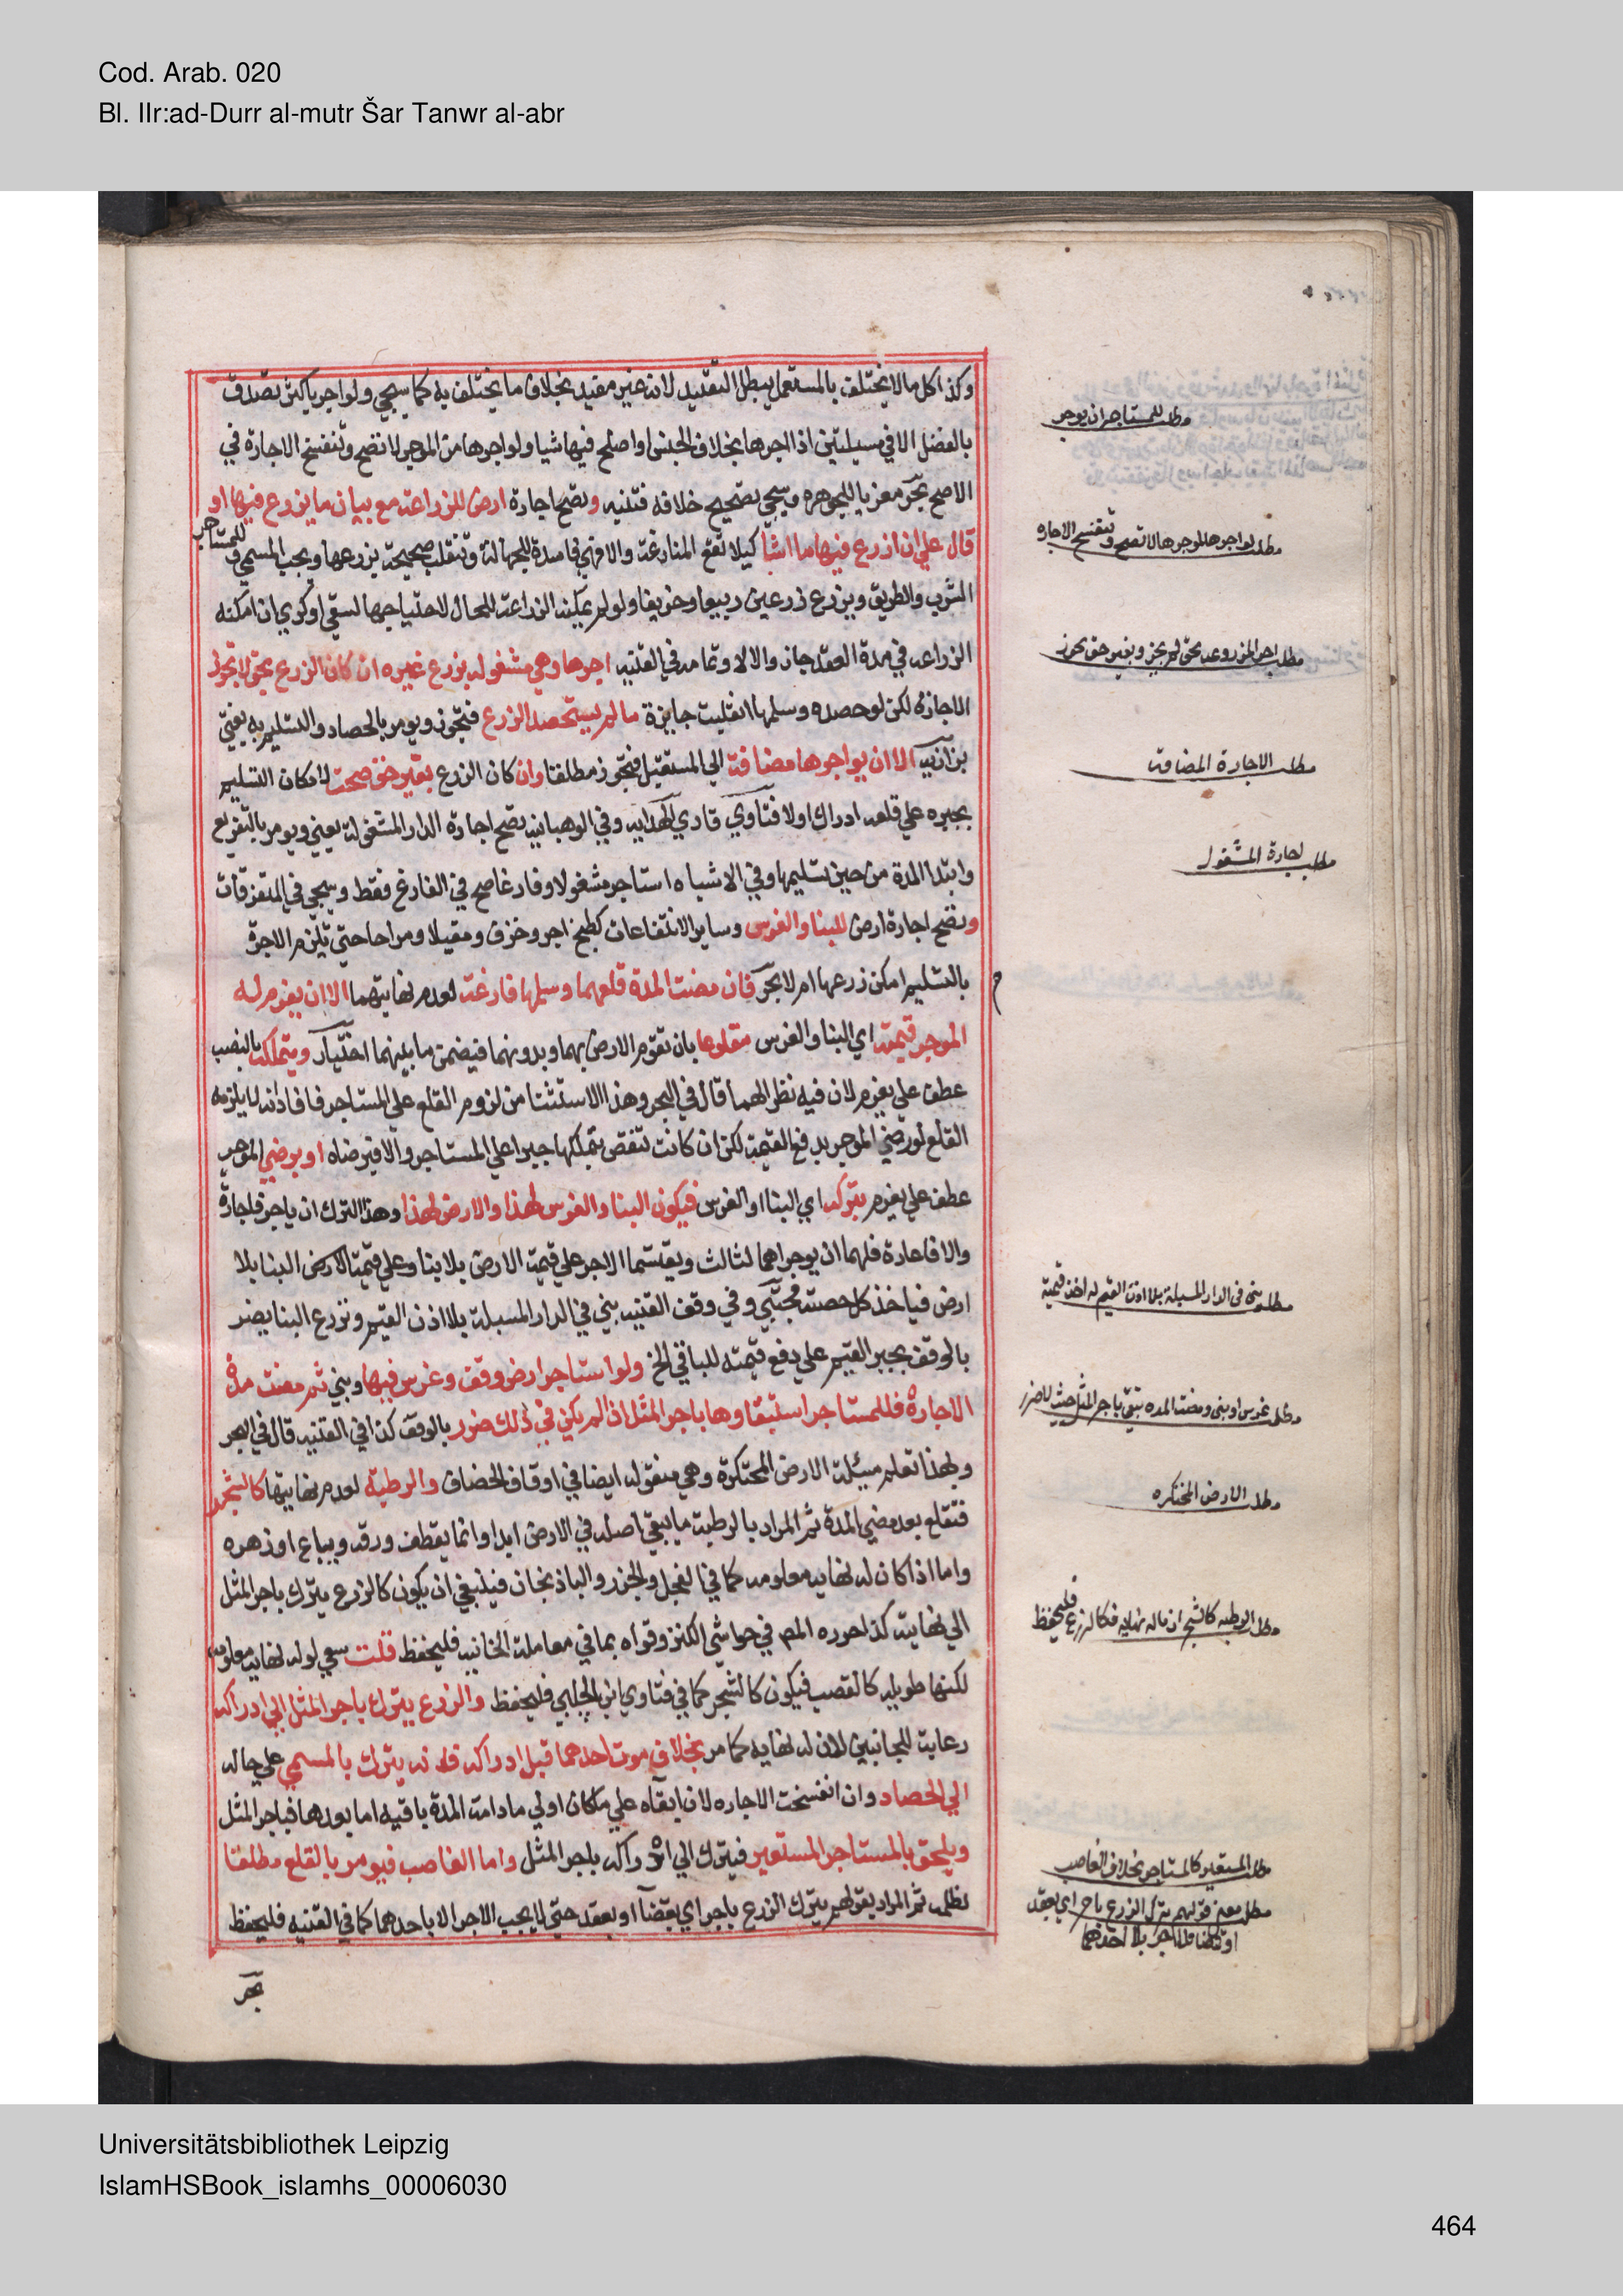 Cod. Arab. 020
Bl. IIr:ad-Durr al-mutr Šar Tanwr al-abr
وكذا كل مالا يختلف بالمستعمل يبطل التقييد لانه غير مفيد بخلاف ما يختلف به كما سيجي ولو اجر باكثر تصدق
بالفضل الا في مسيلتين اذا اجرها بخلاف الجنس او اصلح فيها شيا ولو اجرها من الموجر لا تصح وتنفسخ الاجارة في
الاصح بحر معزيا للجوهره وسيجي تصحيح خلافه فتنبه وتصح اجارة ارض للزراعة مع بيان ما يزرع فيها او
قال علي ان ازرع فيها ما اشأ كيلا تقع المنازعة والا فهي فاسدة للجهالة وتنقلب صحيحة بزرعها ويجب المسمي وللمستاجر
الشرب والطريق ويزرع زرعين ربيعا وخريفا ولو لم يمكنه الزراعة للحال لاحتياجها لسقي او كري ان امكنه
الزراعه في مدة العقد جاز والا لا وتمامه في القنيه اجرها وهي مشغوله بزرع غيره ان كان الزرع بحق لا تجوز
الاجازه لكن لو حصده وسلمها انقلبت جايزة مالم يستحصد الزرع فتجوز ويومر بالحصاد والتسليم به يفتي
بزازيه الا ان يواجرها مضافة الي المستقبل فتجوز مطلقا وان كان الزرع بغير حق صحت لامكان التسليم
بجبره علي قلعه ادرك اولا فتاوي قاري الهدايه وفي الوهبانيه تصح اجارة الدار المشغولة يعني ويومر بالتفريغ
وابتدا المدة من حين تسليمها وفي الاشباه استاجر مشغولا وفارغا صح في الفارغ فقط وسيجي في المتفرقات
وتصح اجارة ارض للبنا والغرس وساير الانتفاعات كطبخ اجر وخزف ومقيلا ومراحا حتي تلزم الاجرة
بالتسليم امكن زرعها ام لا بحر فان مضت المدة قلعهما وسلمها فارغة لعدم نهايتهما الا ان يغرم له
الموجر قيمته اي البنا والغرس مقلوعا بان تقوم الارض بهما وبدونهما فيضمن ما بينهما اختيار ويتملكه بالنصب
عطف علي يغرم لان فيه نظرا لهما قال في البحر وهذا الاستثنا من لزوم القلع علي المستاجر فافاد انه لا يلزمه
القلع لو رضي الموجر بدفع القيمة لكن ان كانت تنقص بتملكها جبرا علي المستاجر والا فبرضاه او يرضي الموجر
عطف علي يغرم بتركه اي البنا او الغرس فيكون البنا والغرس لهذا والارض لهذا وهذا الترك ان باجر فاجارة
والا فاعارة فلهما ان يوجراهما لثالث ويقتسما الاجر علي قيمة الارض بلا بنا وعلي قيمة الارض البنا بلا
ارض فياخذ كل حصته مجتبي وفي وقف القنيه بني في الدار المسبلة بلا اذن القيم ونزع البنا يضر
بالوقف يجبر القيم علي دفع قيمته للباني الخ ولو استاجر ارض وقف وغرس فيها وبني ثم مضت مدة
الاجارة فللمستاجر استبقاوها باجر المثل اذا لم يكن في ذلك ضرر بالوقف كذا في القنيه قال في البحر
وبهذا تعلم مسئلة الارض المحتكرة وهي منقوله ايضا في اوقاف الخصاف والرطبة لعدم نهايتها كالشجر
فتقلع بعد مضي المدة ثم المراد بالرطبة ما يبقي اصله في الارض ابدا وانما يقطف ورقه ويباع او زهره
واما اذا كان له نهايه معلومه كما في الفجل والجزر والباذنجان فينبغي ان يكون كالزرع يترك باجر المثل
الي نهايته كذا حرره المص في حواشي الكنز وقواه بما في معاملة الخانيه فليحفظ قلت بقي لو له نهايه معلومه
لكنها طويله كالقصب فيكون كالشجر كما في فتاوي ابن الجلبي فليحفظ والزرع يترك باجر المثل الي ادراكه
رعاية للجانبين لان له نهايه كما مر بخلاف موت احدهما قبل ادراكه فانه يترك بالمسمي علي حاله
الي الحصاد وان انفسخت الاجاره لان ابقاه علي ماكان اولي مادامت المدة باقيه اما بعدها فباجر المثل
ويلحق بالمستاجر المستعير فيترك الي ادراكه باجر المثل واما الغاصب فيومر بالقلع مطلقا
لظلمه ثم المراد بقولهم يترك الزرع باجر اي بقضآ او بعقد حتي لا يجب الاجر الا باحدهما كما في القنيه فليحفظ
بحر
مطلب للمستاجر ان يوجر
مطلب لو اجرها للموجر هالا تصح وتنفسخ الاجاره
مطلب اجر المزروعه بحق لم يجز وبغير حق يجوز
مطلب الاجارة المضافة
مطلب اجارة المشغول
مطلب بني في الدار المسبلة بلا اذن القيم له اخذ قيمته
مطلب غرس او بني ومضت المده تبقي باجر المثل حيث لا ضرر
مطلب الارض المحتكره
مطلب الرطبه كالشجر ان ماله نهايه فكالزرع فليحفظ
مطلب المستعير كالمستاجر بخلاف الغاصب
مطلب معني قولهم يترك الزرع باجر اي بعقد
Universitätsbibliothek Leipzig
IslamHSBook_islamhs_00006030
464